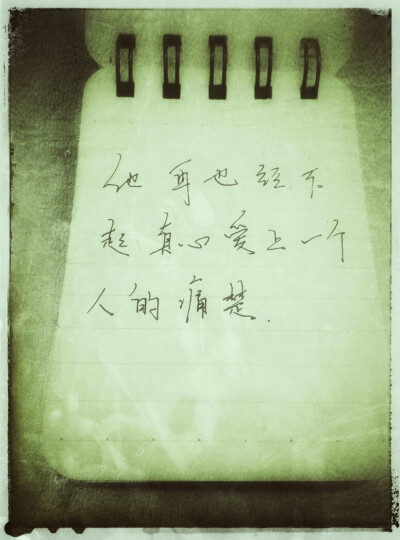 他再也经不
起真心爱上一个
人的痛楚.